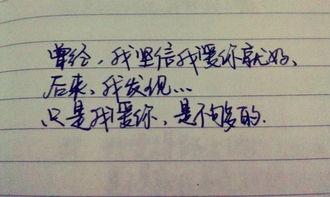 曾经，我坚信我爱你就好、
后来，我发现...
只是我爱你，是不够的.